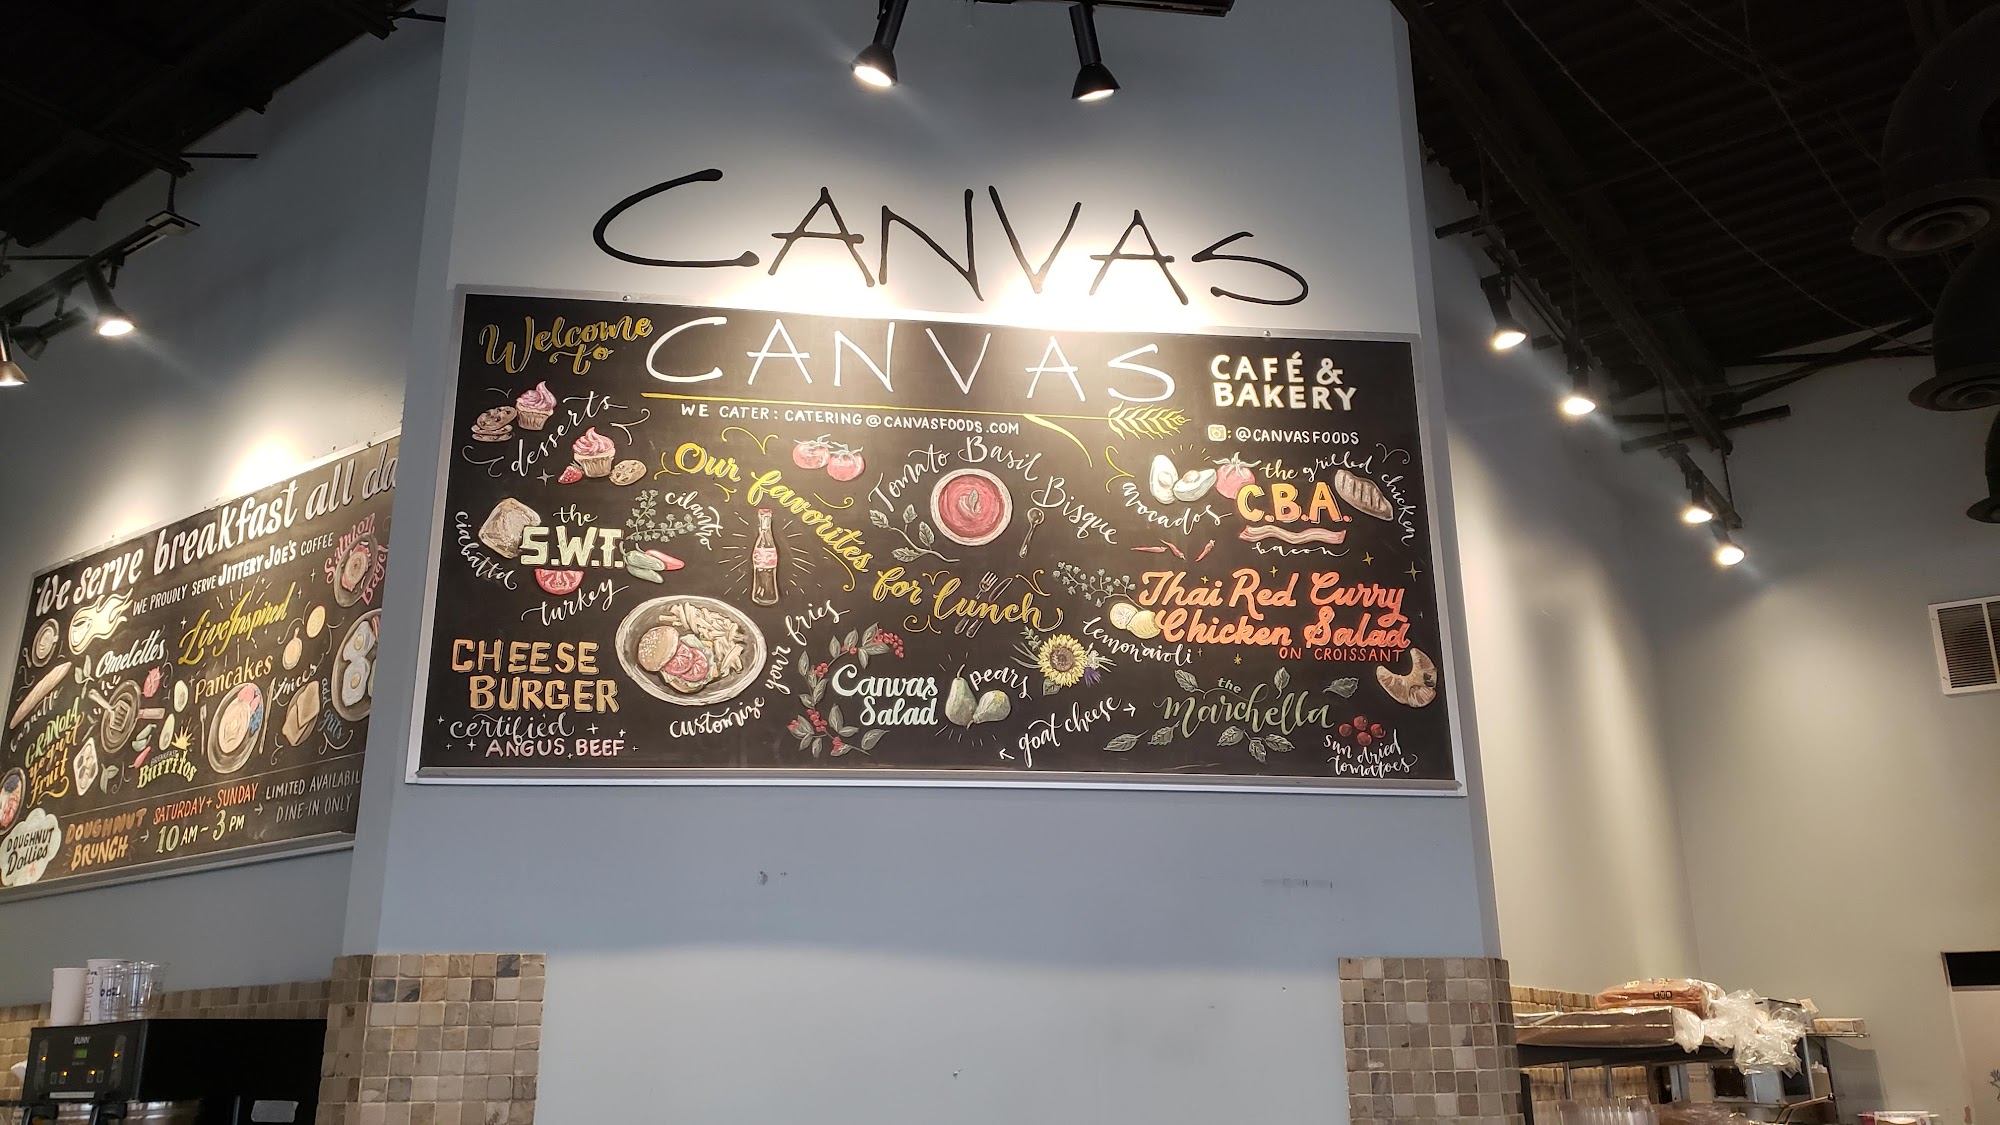 CANVAS
Welcome to
CANVAS
CAFÉ & BAKERY
WE CATER: CATERING@CANVASFOODS.COM
: @CANVASFOODS
desserts
Our favorites for lunch
Tomato Basil Bisque
avocados
the grilled chicken
C.B.A.
bacon
ciabatta
the
S.W.T.
cilantro
turkey
Thai Red Curry
Chicken Salad
ON CROISSANT
lemon aioli
CHEESE
BURGER
certified
ANGUS BEEF
customize your fries
Canvas
Salad
pears
goat cheese
the
Marchella
sun dried
tomatoes
We serve breakfast all da
WE PROUDLY SERVE JITTERY JOE'S COFFEE
Live Inspired
Salmon
Bagel
Omelettes
Pancakes
Juices
GRANOLA
Yogurt
Fruit
BREAKFAST
Burritos
DOUGHNUT
Dollies
DOUGHNUT
BRUNCH
SATURDAY + SUNDAY
10 AM - 3 PM
LIMITED AVAILABIL
DINE-IN ONLY
BUNN